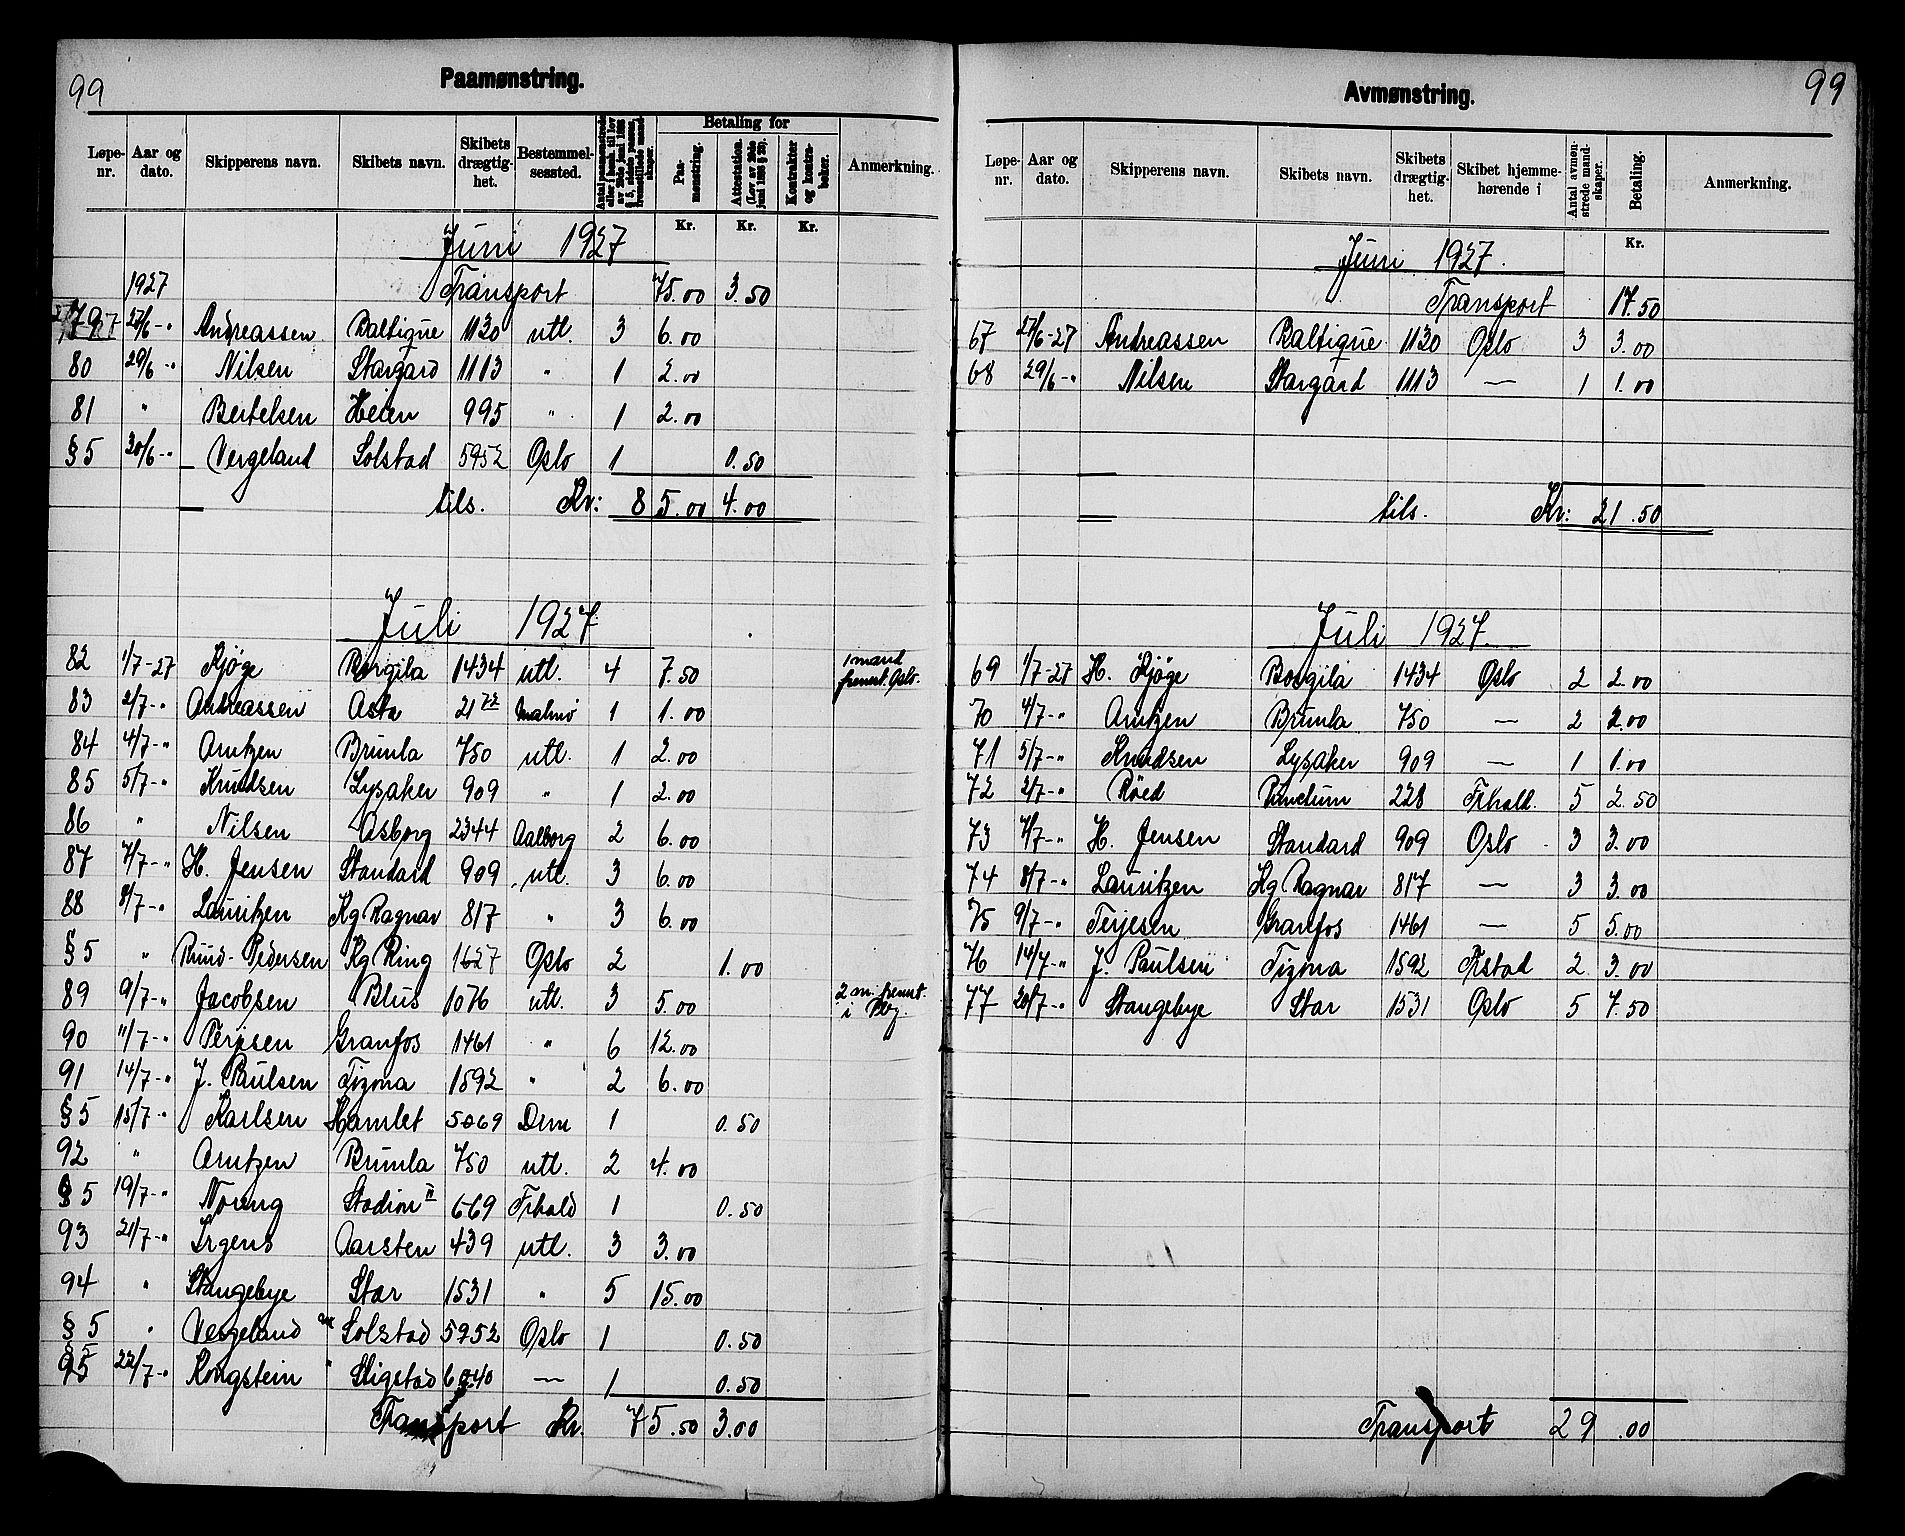 99
Paamønstring.
Løpe-nr. Aar og dato. Skipperens navn. Skibets navn. Skibets drægtig-het. Bestemmel-sessted. Betaling for Paa-mønstring. Attestation. (Lov av 29de juni 1888 § 23). Kontrakter og kontra-bøker. Anmerkning.
Kr. Kr. Kr.
Juni 1927
1927 Transport 75.00 3.50
79 27/6 -" Andreassen Baltique 1130 utl. 3 6.00
80 29/6 -" Nilsen Stargard 1113 " 1 2.00
81 " Bertelsen Heien 995 " 1 2.00
§ 5 30/6 -" Vergeland Solstad 5952 Oslo 1 0.50
tils. Kr: 85.00 4.00
Juli 1927
82 1/7-27 Kjøge Borgila 1434 utl. 4 7.50 1 mand fremst. Oslo.
83 2/7-" Andreassen Asta 21 72 Malmø 1 1.00
84 4/7-" Arntzen Brumla 750 utl. 1 2.00
85 5/7-" Knudsen Lysaker 909 " 1 2.00
86 " Nilsen Asborg 2344 Aalborg 2 6.00
87 7/7-" H. Jensen Standard 909 utl. 3 6.00
88 8/7-" Lauritzen Kg Ragnar 817 " 3 6.00
§ 5 " Ruud-Pedersen Kg Ring 1627 Oslo 2 1.00
89 9/7-" Jacobsen Blus 1076 utl. 3 5.00 2 m. fremst. i
90 11/7-" Terjesen Granfos 1461 " 6 12.00
91 14/7-" J. Paulsen Tizona 1592 " 2 6.00
§ 5 15/7-" Karlsen Hamlet 5069 Drm 1 0.50
92 " Arntzen Brumla 750 utl. 2 4.00
§ 5 19/7-" Noreng Stadion II 669 Frhald 1 0.50
93 21/7-" Irgens Aarsten 439 utl. 3 3.00
94 " Stangebye Star 1531 " 5 15.00
§ 5 " Vergeland Solstad 5952 Oslo 1 0.50
§ 5 22/7-" Rongstein " Sligstad 6040 — 1 0.50
Transport Kr. 75.50 3.00
99
Avmønstring.
Løpe-nr. Aar og dato. Skipperens navn. Skibets navn. Skibets drægtig-het. Skibet hjemme-hørende i Antal avmøn-strede mand-skaper. Betaling. Anmerkning.
Kr.
Juni 1927.
Transport 17.50
67 27/6-27 Andreassen Baltique 1130 Oslo 3 3.00
68 29/6-" Nilsen Stargard 1113 — 1 1.00
tils. Kr: 21.50
Juli 1927.
69 1/7-27 H. Kjøge Borgila 1434 Oslo 2 2.00
70 4/7-" Arntzen Brumla 750 — 2 2.00
71 5/7-" Knudsen Lysaker 909 — 1 1.00
72 2/7-" Røed Punctum 228 Frhald. 5 2.50
73 7/7-" H. Jensen Standard 909 Oslo 3 3.00
74 8/7-" Lauritzen Kg Ragnar 817 — 3 3.00
75 9/7-" Terjesen Granfos 1461 — 5 5.00
76 14/7-" J. Paulsen Tizona 1592 Frstad 2 3.00
77 20/7-" Stangebye Star 1531 Oslo 5 7.50
Transport 29.00